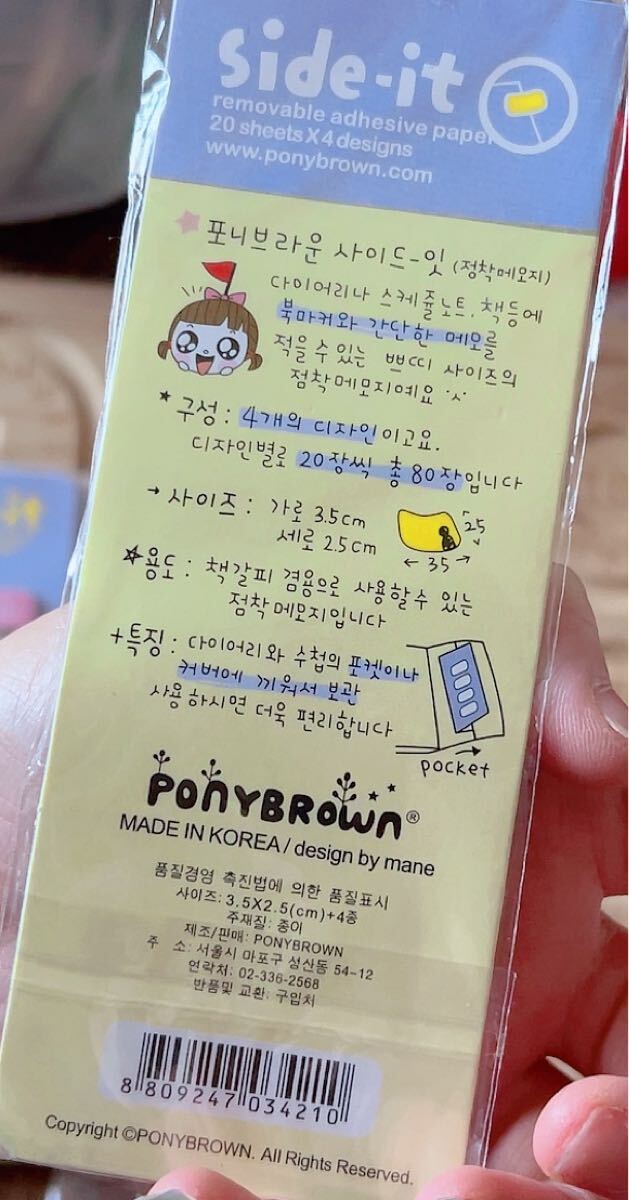 side-it
removable adhesive paper
20 sheets X 4 designs
www.ponybrown.com
포니브라운 사이드-잇 (점착메모지)
다이어리나 스케쥴노트, 책등에
북마커와 간단한 메모를
적을 수 있는 쁘띠 사이즈의
점착메모지예요
* 구성 : 4개의 디자인이고요.
디자인별로 20장씩 총 80장입니다
→ 사이즈 : 가로 3.5cm
세로 2.5cm
25
← 35 →
☆용도 : 책갈피 겸용으로 사용할수 있는
점착메모지입니다
+특징 : 다이어리와 수첩의 포켓이나
커버에 끼워서 보관
사용하시면 더욱 편리합니다
pocket
PONYBROWN®
MADE IN KOREA / design by mane
품질경영 촉진법에 의한 품질표시
사이즈: 3.5X2.5(cm)+4종
주재질: 종이
제조/판매: PONYBROWN
주 소: 서울시 마포구 성산동 54-12
연락처: 02-336-2568
반품및 교환: 구입처
8 809247 034210
Copyright ©PONYBROWN. All Rights Reserved.